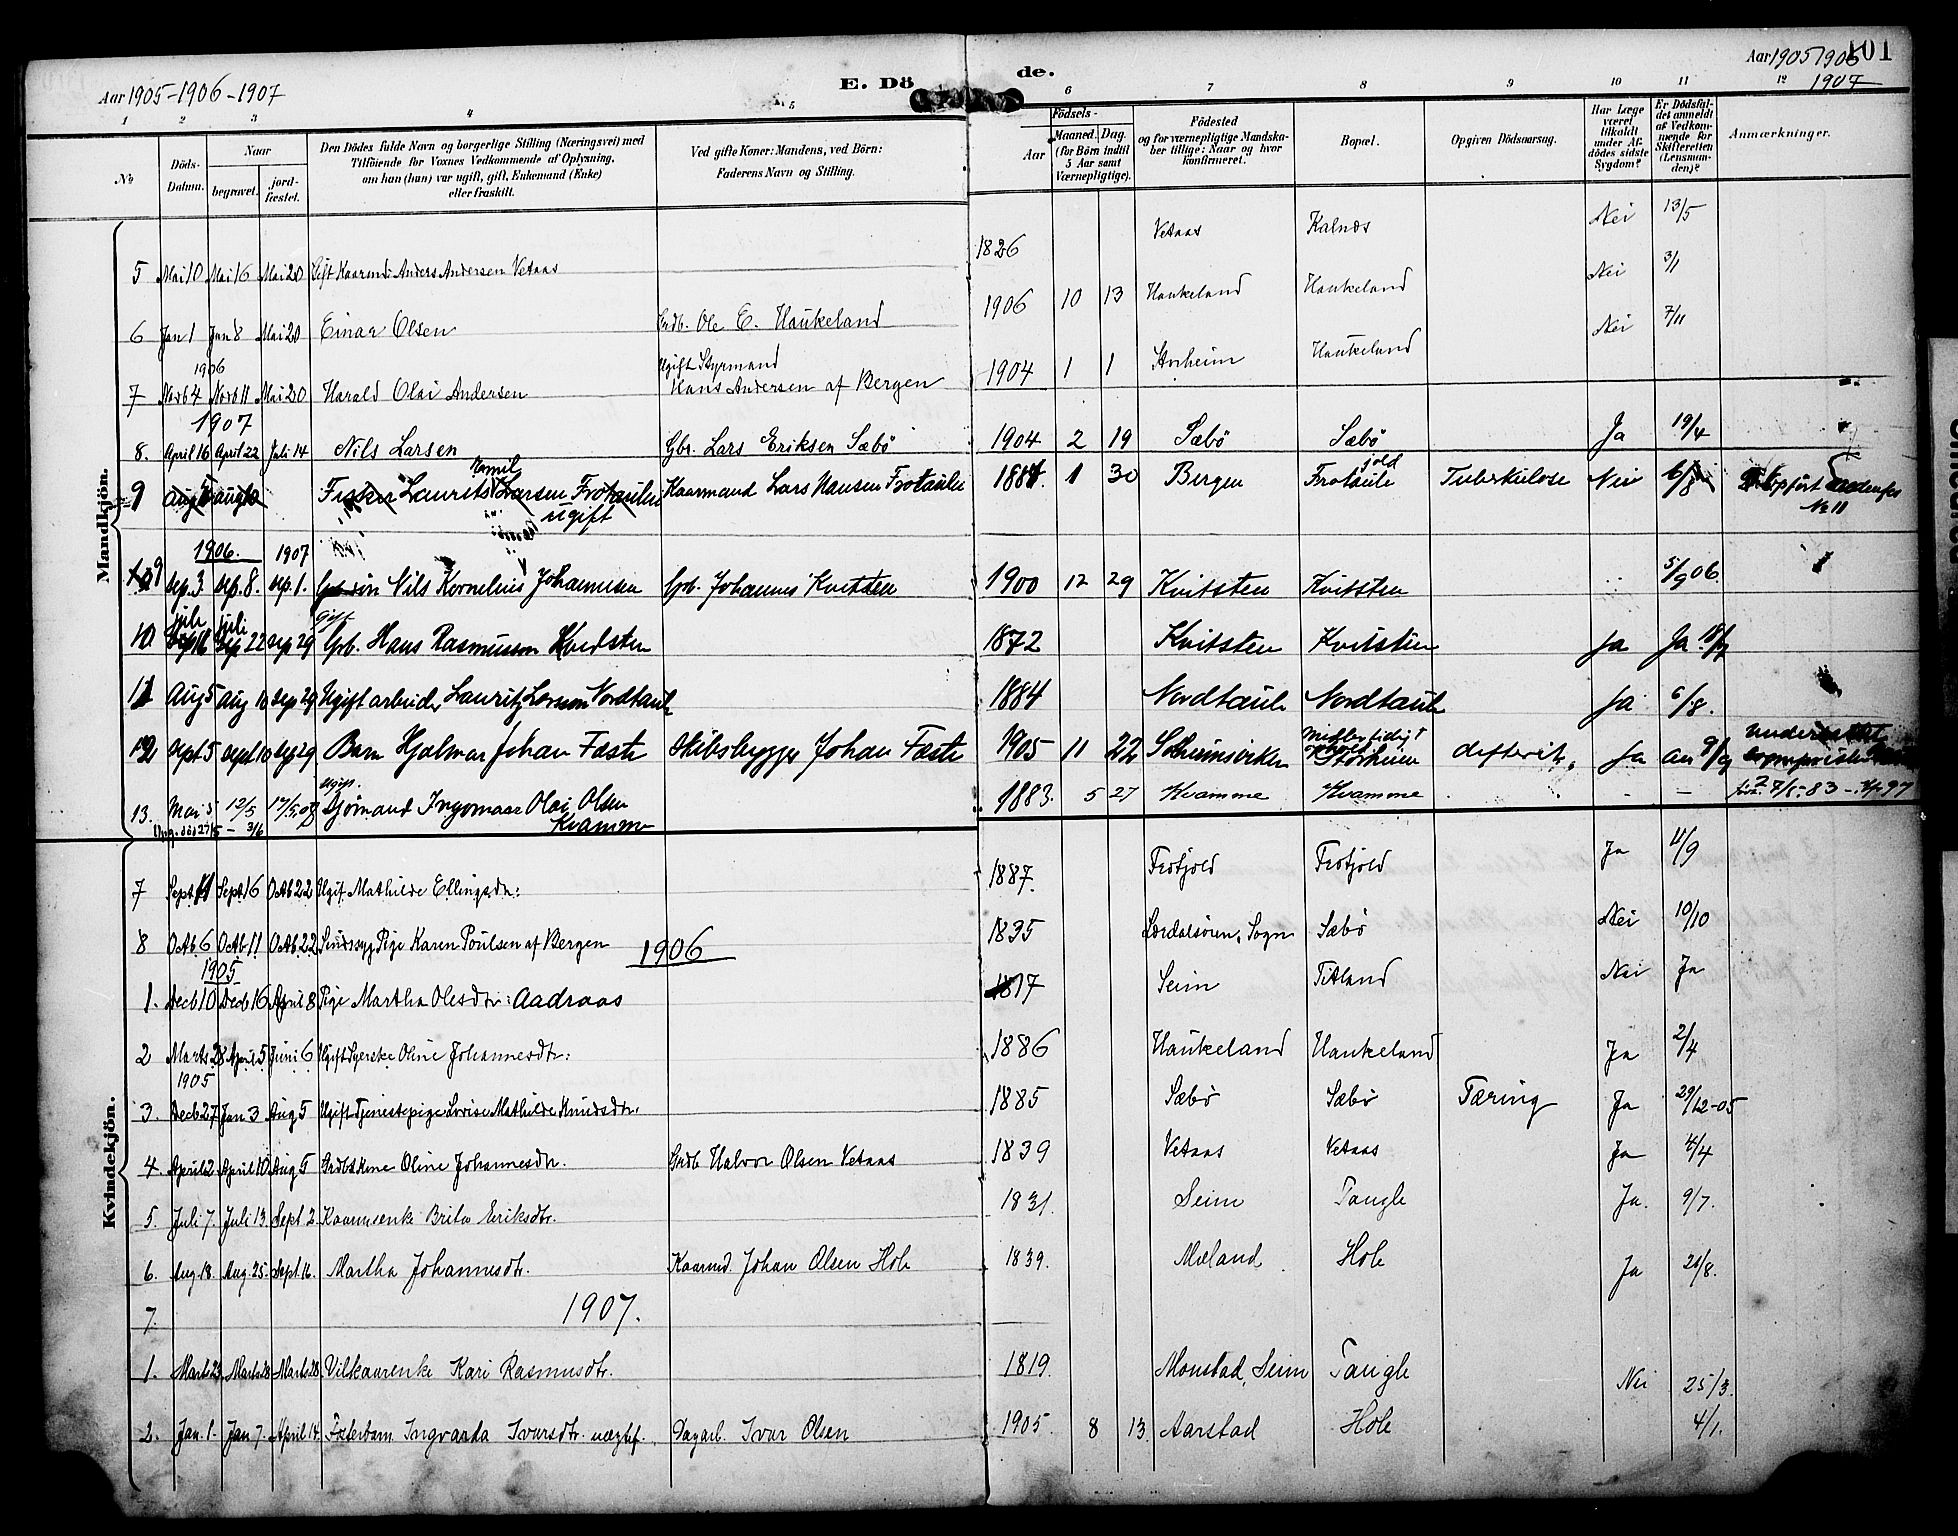 Aar 1905-1906-1907
E. Dö de.
Aar 1905 1906 101
1907
1 2 3 4 5 6 7 8 9 10 11 12
No
Döds-Datum.
Naar
begravet.
jord-fæstet.
Den Dödes fulde Navn og borgerlige Stilling (Næringsvei) med
Tilföiende for Voxnes Vedkommende af Oplysning,
om han (hun) var ugift, gift, Enkemand (Enke)
eller fraskilt.
Ved gifte Koner: Mandens, ved Börn:
Faderens Navn og Stilling.
Födsels-
Aar
Maaned. Dag.
(for Börn indtil
5 Aar samt
Værnepligtige).
Födested
og for værnepligtige Mandska-
ber tillige: Naar og hvor
konfirmeret.
Bopæl.
Opgiven Dödsaarsag.
Har Læge
været
tilkaldt
under Af-
dödes sidste
Sygdom?
Er Dödsfal-
det anmeldt
af Vedkom-
mende for
Skifteretten
(Lensman-
den)?
Anmærkninger.
Mandkjön.
5 Mai 10 Mai 16 Mai 20 Gift Kaarmd. Anders Andersen Vetaas 1826 Vetaas Kalnæs Nei 13/5
6 Jan 1 Jan 8 Mai 20 Einar Olsen Grdb. Ole E. Haukeland 1906 10 13 Haukeland Haukeland Nei 3/1
1906
7 Novb 4 Novb 11 Mai 20 Harald Olai Andersen Ugift Styrmand Hans Andersen af Bergen 1904 1 1 Storheim Haukeland Nei 7/11
1907
8. April 16 April 22 Juli 14 Nils Larsen Gbr. Lars Eriksen Sæbö 1904 2 19 Sæbö Sæbö Ja 19/4
9 Aug Aug 10 Fisker Laurits Larsen Frotaule ugift Kaarmand Lars Hansen Frotaule 1884. 1 30 Bergen Frotaule Tuberkulose Nei 6/8 opfört nedenfor
No 11
1906. 1907
9 sep. 3 sep. 8. sep. 1. Nils Kornelius Johannesen Grb. Johannes Kvitsten 1900 12 29 Kvitsten Kvitsten 5/9 06.
juli juli gift
10 16 22 sep 29 Grb. Hans Rasmussen Kvidsten 1872 Kvitsten Kvitsten Ja Ja 18/7
11 Aug 5 aug 10 sep 29 Ugift arbeider Lauritz Larsen Nordtaule 1884 Nordtaule Nordtaule Ja 6/8.
12 Sept 5 sept 10 sep 29 Barn Hjalmar Johan Faste Skibsbygger Johan Faste 1905 11 22 Midlertidigt ophold Storheim difterit. Ja an 9/9
13. Mai 5 12/5 17/5.08 ugift Sjömand Ingomaar Olai Olsen Kvamme 1883. 5 27 Kvamme Kvamme - -
27/5 - 3/6
Kvindekjön.
7 Sept. 11 Sept. 16 Octb 22 Ugif. Mathilde Ellingsdr: 1887. Frotjold Frotjold Ja 11/9
8 Octb 6 Octb 11 Octb. 22 Sindssyg Pige Karen Poulsen af Bergen 1835 Lærdalsören, Sogn Sæbö Nei 10/10
1906
1905
1. Decb 10 Decb 16 April 8 Pige Martha Olesdtr: Aadraas 1817 Seim Titland Nei Ja
2 Marts 28 April 5 Juni 6 Ugift Syerske Oline Johannesdtr: 1886 Haukeland Haukeland Ja 2/4
1905
3. Decb 27 Jan 3 Aug 5 Ugift Tjenestepige Lovise Mathilde Knudsdtr. 1885 Sæbö Sæbö Tæring Ja 29/12-05
4. April 2 April 10 Aug 5 Grdbs Kone Oline Johannesdtr. Grdb Halvor Olsen Vetaas 1839 Vetaas Vetaas Ja 4/4
5. Juli 7. Juli 13. Sept 2. Kaarmsenke Brita Eriksdtr. 1831. Seim Tangle Ja. 9/7.
6. Aug. 18. Aug. 25. Sept. 16. Martha Johannesdtr. Kaarmd. Johan Olsen Hole 1839. Mæland Hole Ja 26/8.
7. 1907.
1. Marts 23 Marts 28 Marts 28. Vilkaarenke Kari Rasmusdtr. 1819. Monstad, Seim Tangle Nei 25/3.
2. Jan. 1. Jan 7. April 14. Fosterbarn Ingvarda Ivarsdtr. uægtef. Dagarb. Ivar Olsen 1905. 8 13. Aarstad Hole 4/1.